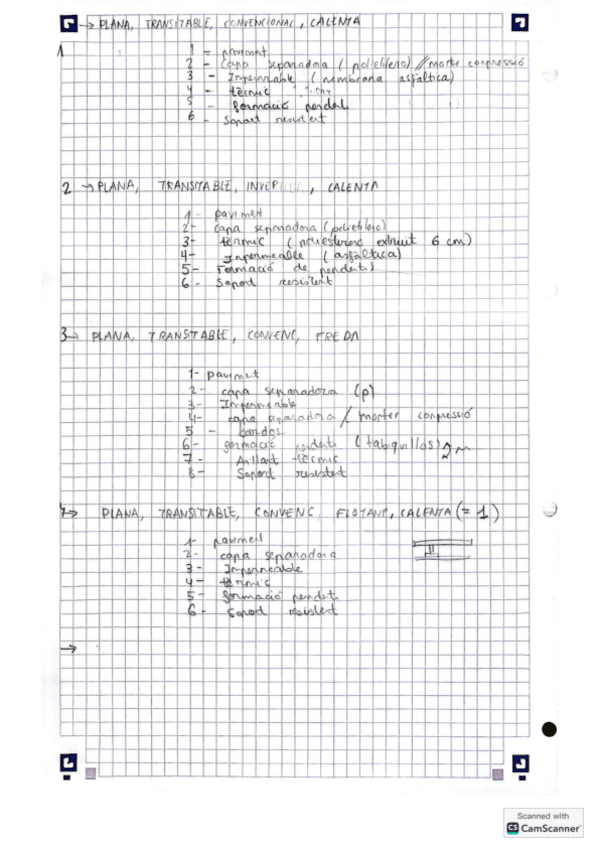 → PLANA, TRANSITABLE, CONVENCIONAL, CALENTA
1
1 - paviment
2 - Capa separadora (polietileno) // morter compressió
3 - Impermeable (membrana asfaltica)
4 - tèrmic
5 - formació pendent
6 - Soport resistent
2 → PLANA, TRANSITABLE, INVER , CALENTA
1 - paviment
2 - capa separadora (polietileno)
3 - tèrmic (poliestireno extruit 6 cm)
4 - Impermeable (asfaltica)
5 - Formació de pendents
6 - Soport resistent
3 → PLANA, TRANSITABLE, CONVENC, FREDA
1 - paviment
2 - capa separadora (p)
3 - Impermeable
4 - capa separadora / morter compressió
5 -
6 - formació pendents (tabiquillos)
7 - Aillant tèrmic
8 - Soport resistent
→ PLANA, TRANSITABLE, CONVENC, FLOTANT, CALENTA (= 1)
1 - paviment
2 - capa separadora
3 - Impermeable
4 - tèrmic
5 - formació pendents
6 - Soport resistent
→
Scanned with
CS CamScanner